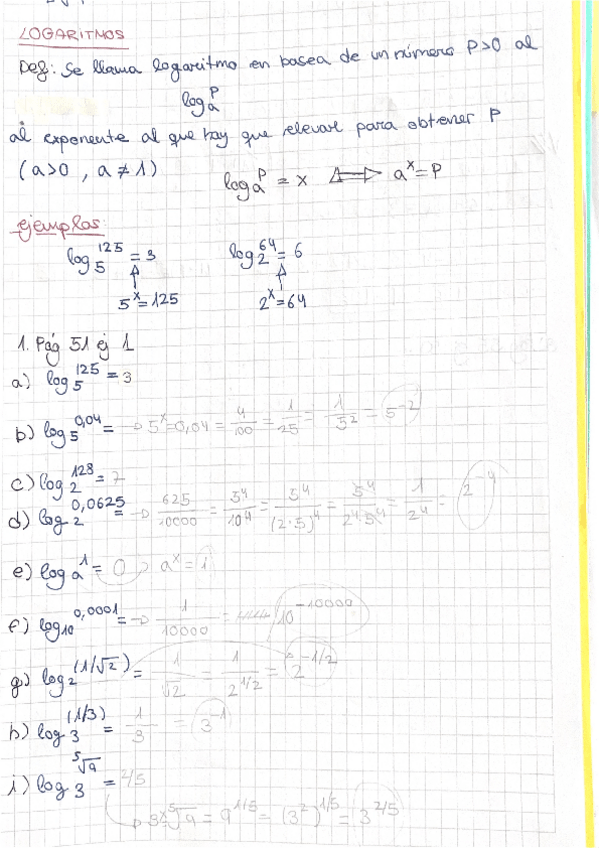 LOGARITMOS
Def: Se llama logaritmo en base a de un número P>0 al
log_a^P
al exponente al que hay que elevar para obtener P
(a>0 , a≠1) log_a^P = x ⟺ a^x = P
ejemplos:
log_5^125 = 3 log_2^64 = 6
5^x = 125 2^x = 64
1. Pág 51 ej 1
a) log_5^125 = 3
b) log_5^0,04 = → 5^x = 0,04 = 4/100 = 1/25 = 1/5^2 = 5^-2
c) log_2^128 = 7
d) log_2^0,0625 = → 625/10000 = 5^4/10^4 = 5^4/(2·5)^4 = 5^4/2^4·5^4 = 1/2^4 = 2^-4
e) log_a^1 = 0 → a^x = 1
f) log_10^0,0001 = → 1/10000 = 10^-10000
g) log_2^(1/√2) = 1/√2 = 1/2^1/2 = 2^-1/2
h) log_3^(1/3) = 1/3 = 3^-1
i) log_3^⁵√9 = 2/5
→ 3^x = ⁵√9 = 9^1/5 = (3^2)^1/5 = 3^2/5